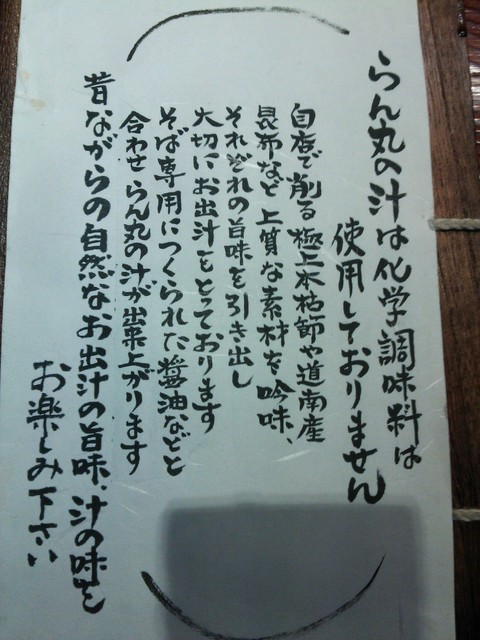 らん丸の汁は化学調味料は
使用しておりません
自店で削る極上本枯節や道南産
昆布など上質な素材を吟味、
それぞれの旨味を引き出し
大切にお出汁をとっております
そば専用につくられた醤油などと
合わせらん丸の汁が出来上がります
昔ながらの自然なお出汁の旨味、汁の味を
お楽しみ下さい